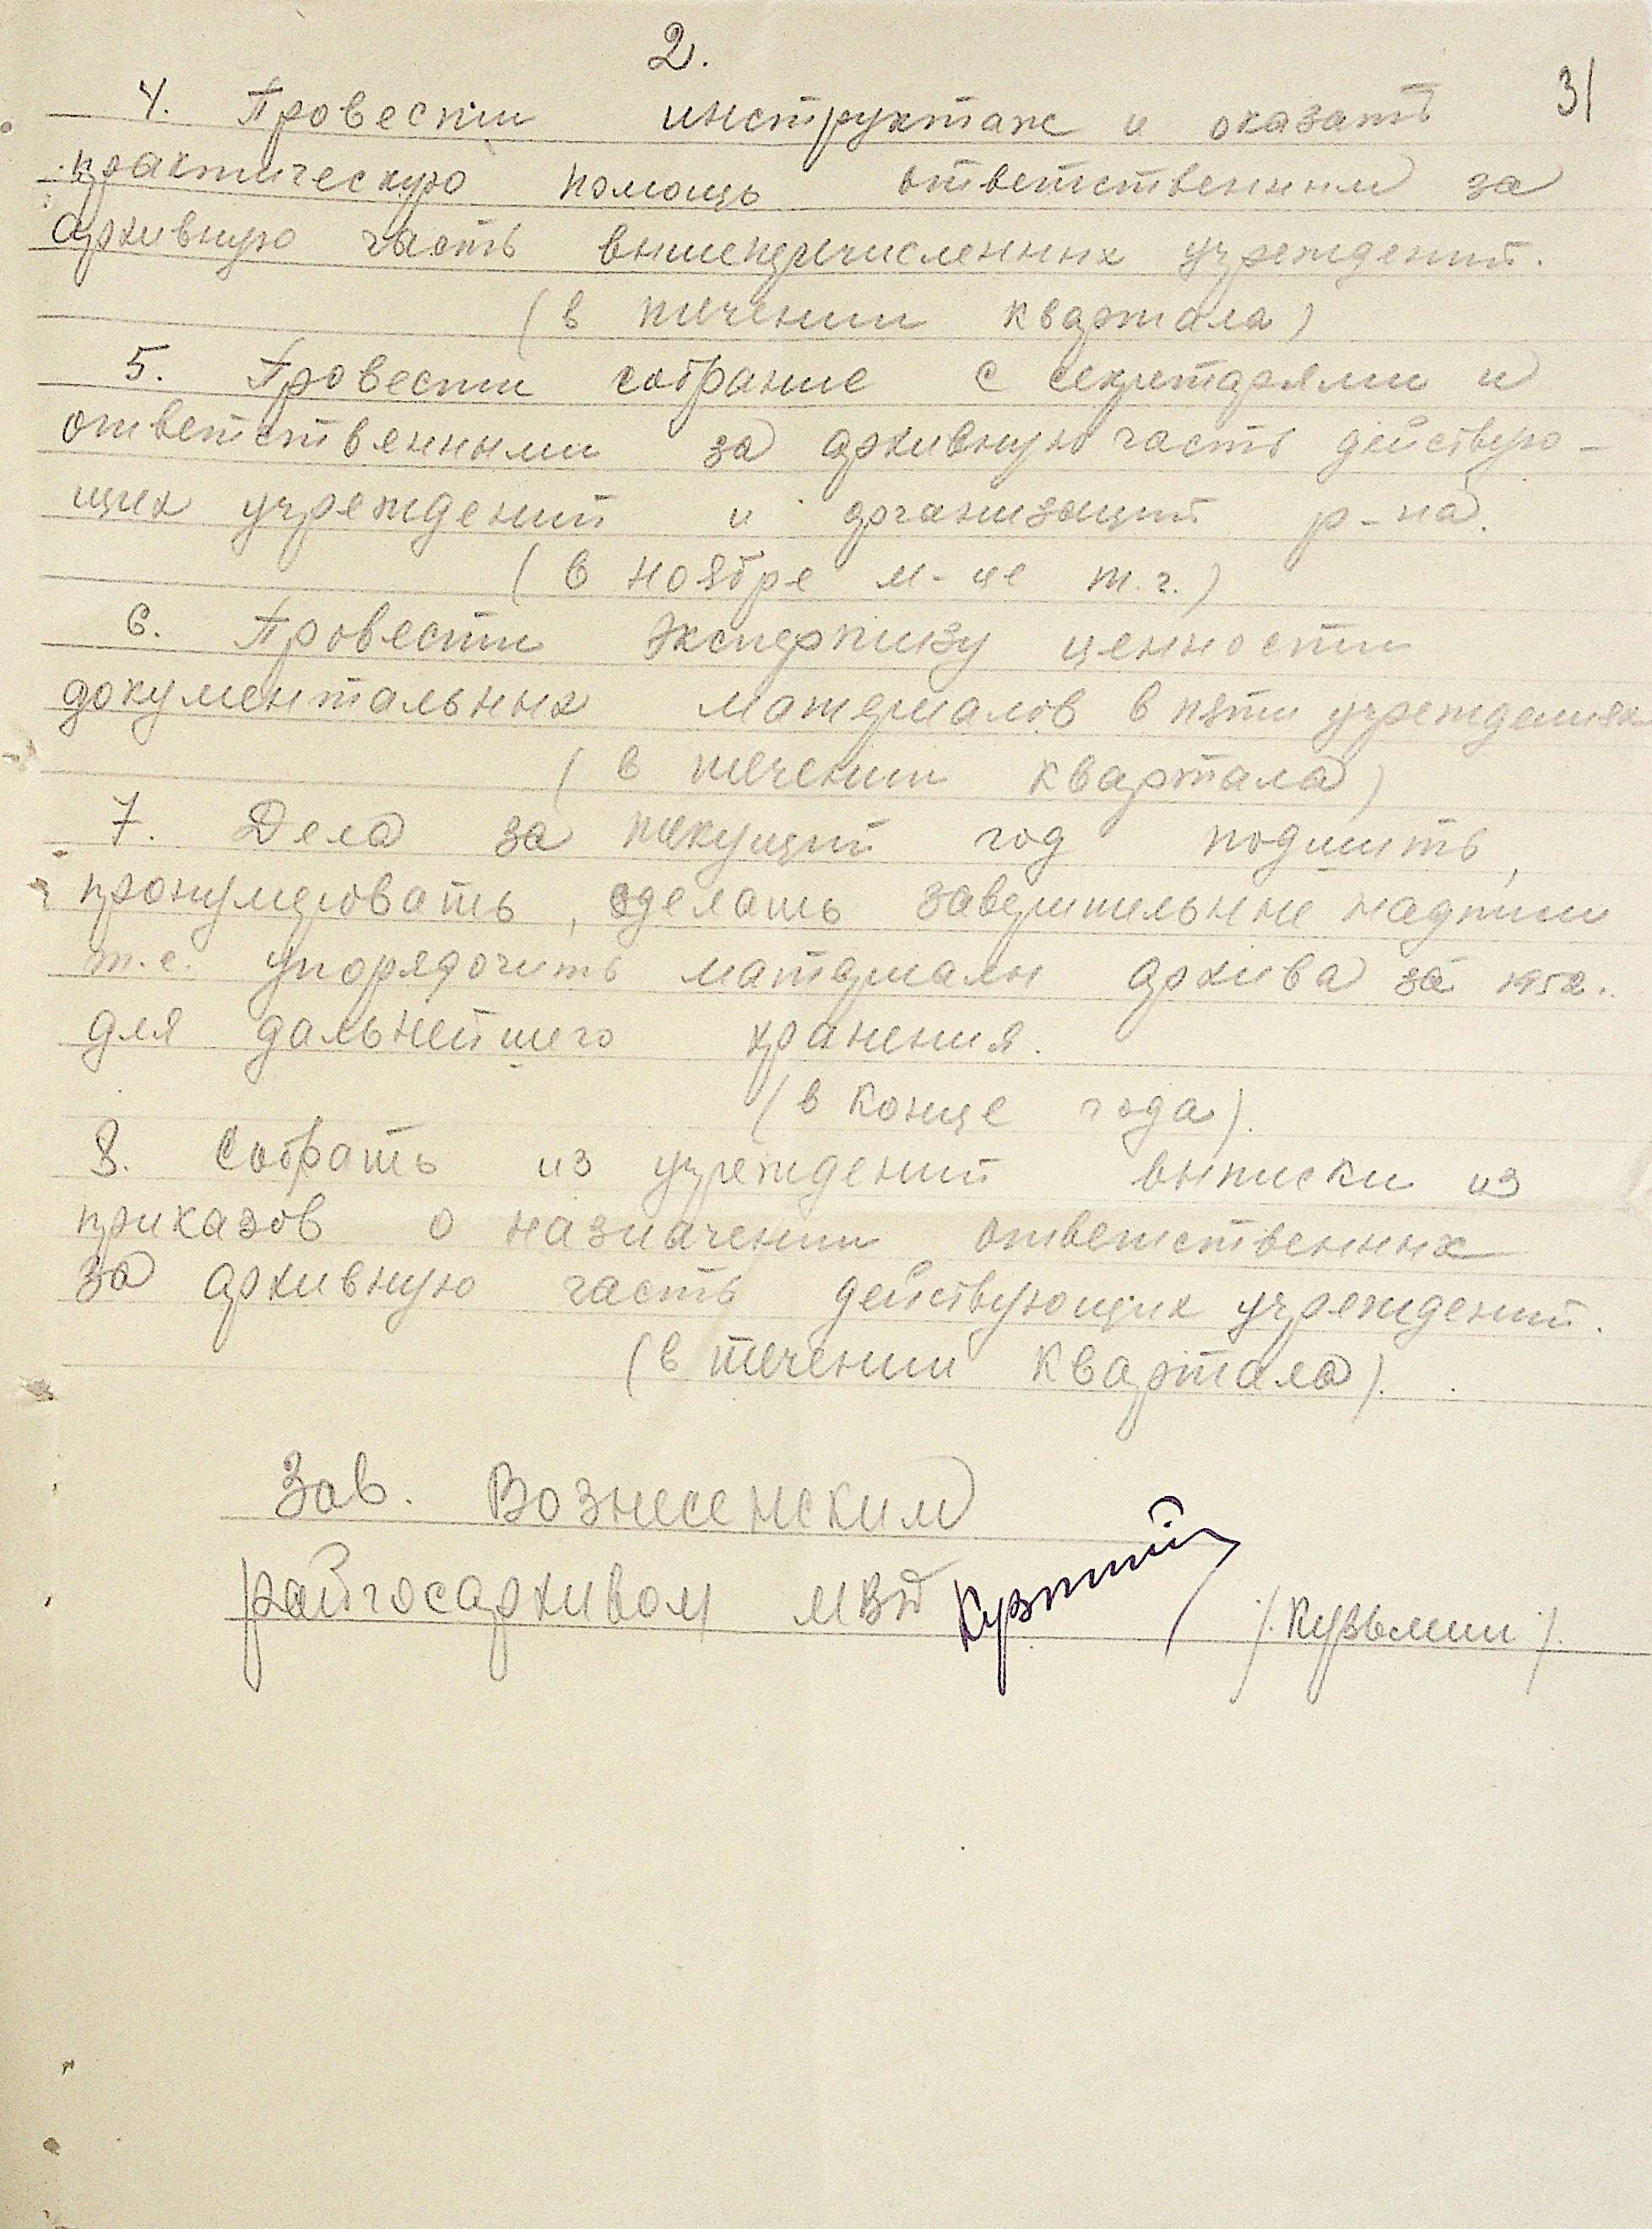 2.
31
4. Провести инструктаж и оказать
практическую помощь ответственным за
архивную часть вышеперечисленных учреждений.
(в течении квартала)
5. Провести собрание с секретарями и
ответственными за архивную часть действую-
щих учреждений и организаций р-на.
(в ноябре м-це т.г.)
6. Провести экспертизу ценности
документальных материалов в пяти учреждениях
(в течении квартала)
7. Дела за текущий год подшить,
пронумеровать, сделать заверительные надписи
т.е. упорядочить материалы архива за 1952.
для дальнейшего хранения.
(в конце года).
8. Собрать из учреждений выписки из
приказов о назначении ответственных
за архивную часть действующих учреждений.
(в течении квартала).
Зав. Вознесенским
райгосархивом МВД /.Кузьмин/.